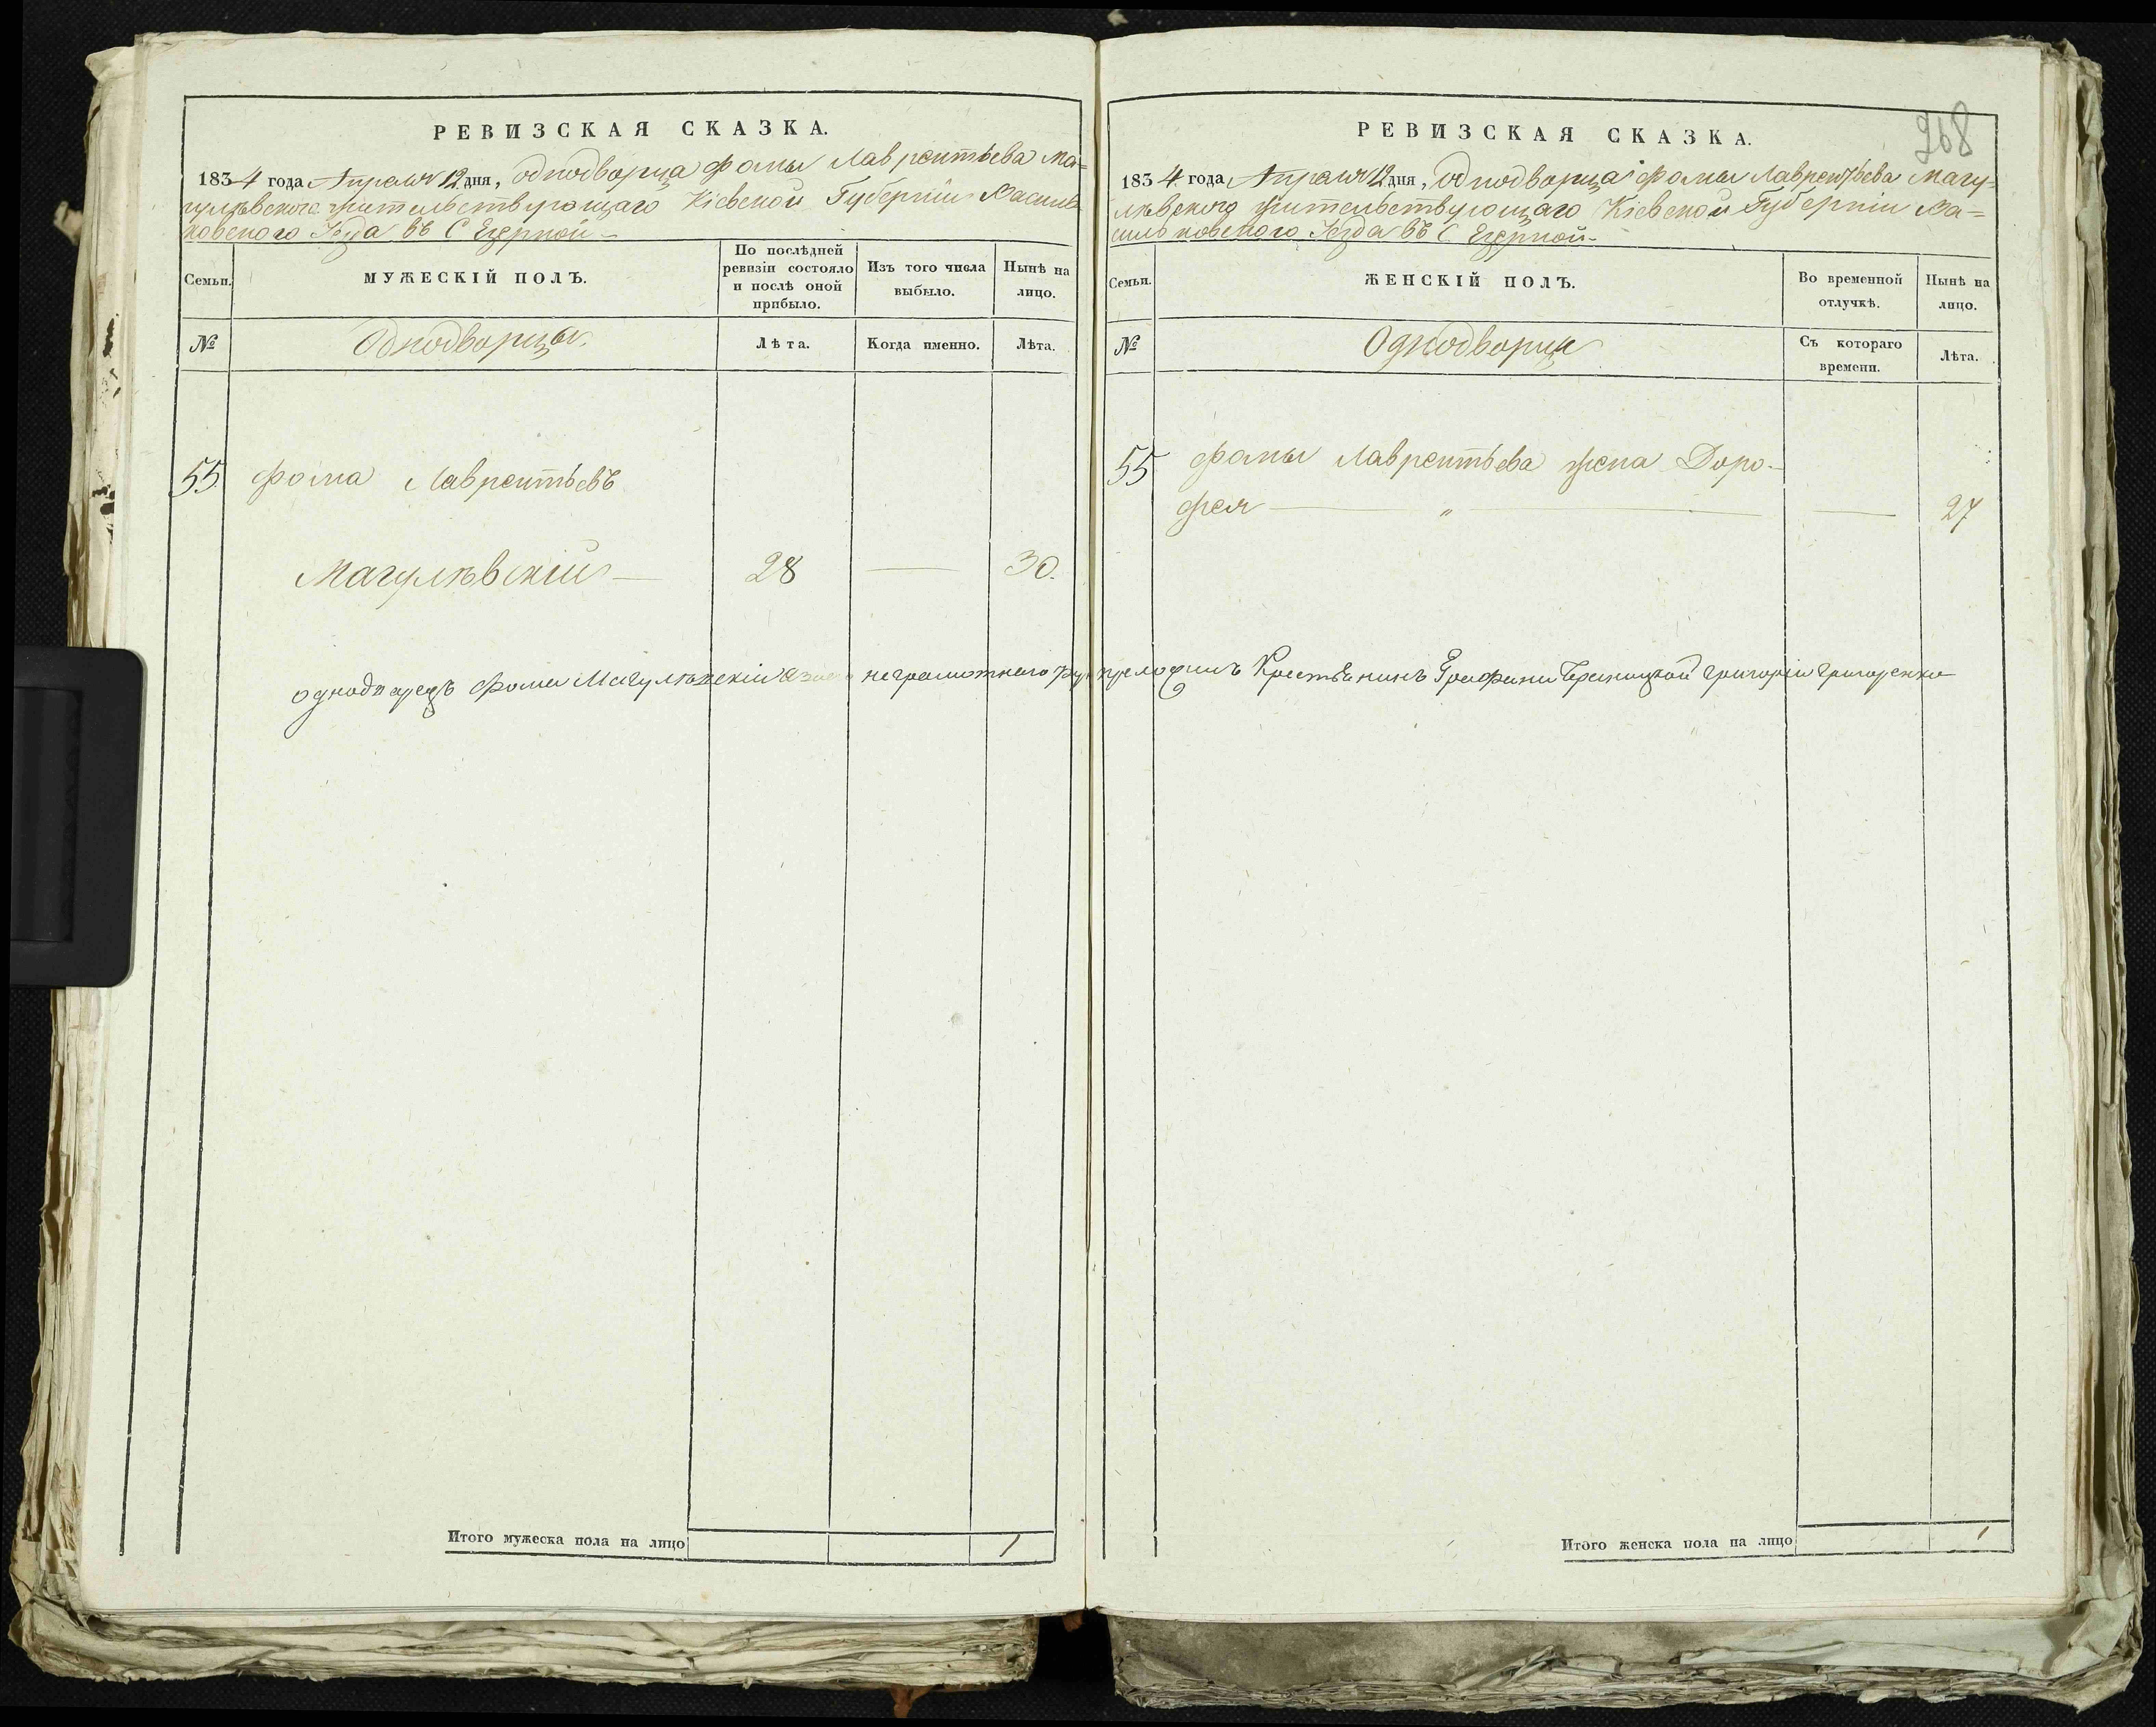 РЕВИЗСКАЯ СКАЗКА.
1834 года Апреля 12 дня, однодворца Фомы Лаврентьева Ма=
гулѣвского жительствующаго Кіевской Губерніи Василь
ковского Уезда въ С Езерной
Семьи.
МУЖЕСКІЙ ПОЛЪ.
По послѣдней
ревизіи состояло
и послѣ оной
прибыло.
Изъ того числа
выбыло.
Нынѣ на
лицо.
№
Однодворцы.
Лѣта.
Когда именно.
Лѣта.
55. Фома Лаврентьевъ
Магулѣвскій 28 — 30.
однодворецъ Фома Магулѣвскій а за неграмотнаго
Итого мужеска пола на лицо 1
268
РЕВИЗСКАЯ СКАЗКА.
1834 года Апреля 12 дня, Однодворца Фомы Лаврентьева Магу=
лѣвского жительствующаго Кіевской Губерніи Ва=
сильковского Уезда въ С. Езерной
Семьи.
ЖЕНСКІЙ ПОЛЪ.
Во временной
отлучкѣ.
Нынѣ на
лицо.
№
Однодворцы
Съ котораго
времени.
Лѣта.
55 Фомы Лаврентьева жена Доро-
фея — " — — 27
Крестьянинъ Графини Браницкой Григорій Григоренко
Итого женска пола на лицо 1